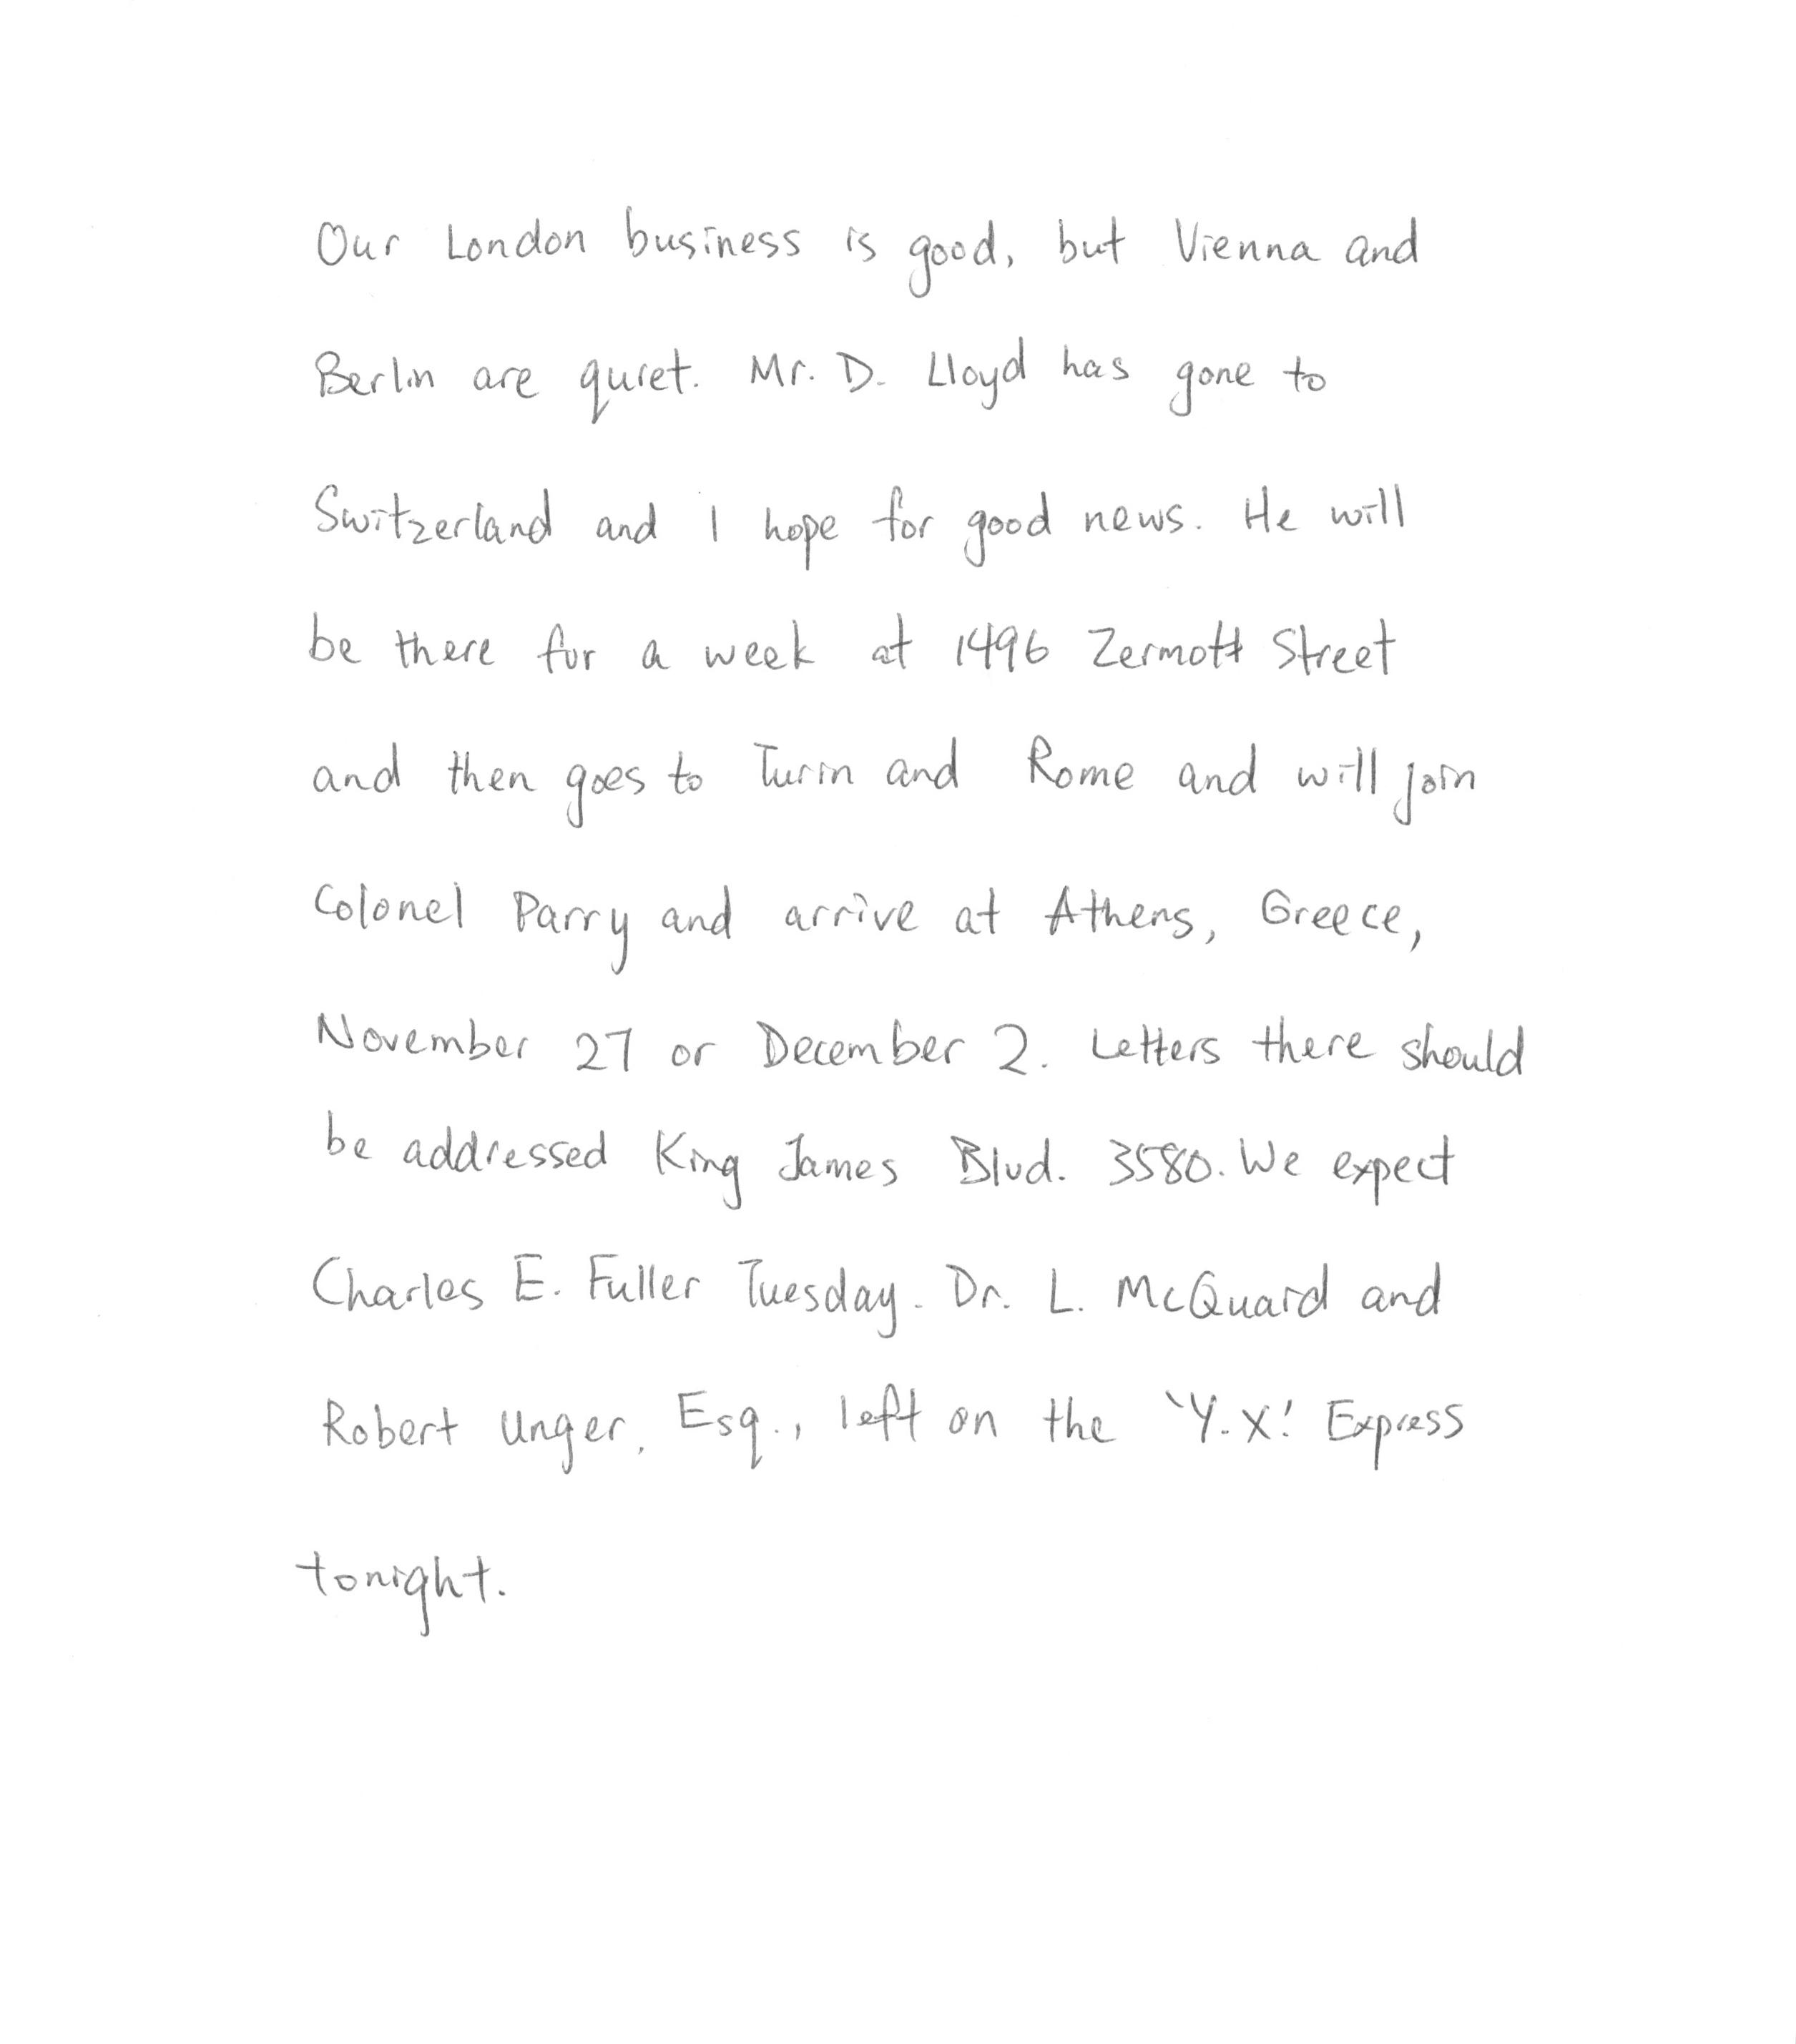 Our London business is good, but Vienna and
Berlin are quiet. Mr. D. Lloyd has gone to
Switzerland and I hope for good news. He will
be there for a week at 1496 Zermott Street
and then goes to Turin and Rome and will join
Colonel Parry and arrive at Athens, Greece,
November 27 or December 2. Letters there should
be addressed King James Blvd. 3580. We expect
Charles E. Fuller Tuesday. Dr. L. McQuard and
Robert Unger, Esq., left on the 'Y.X.' Express
tonight.